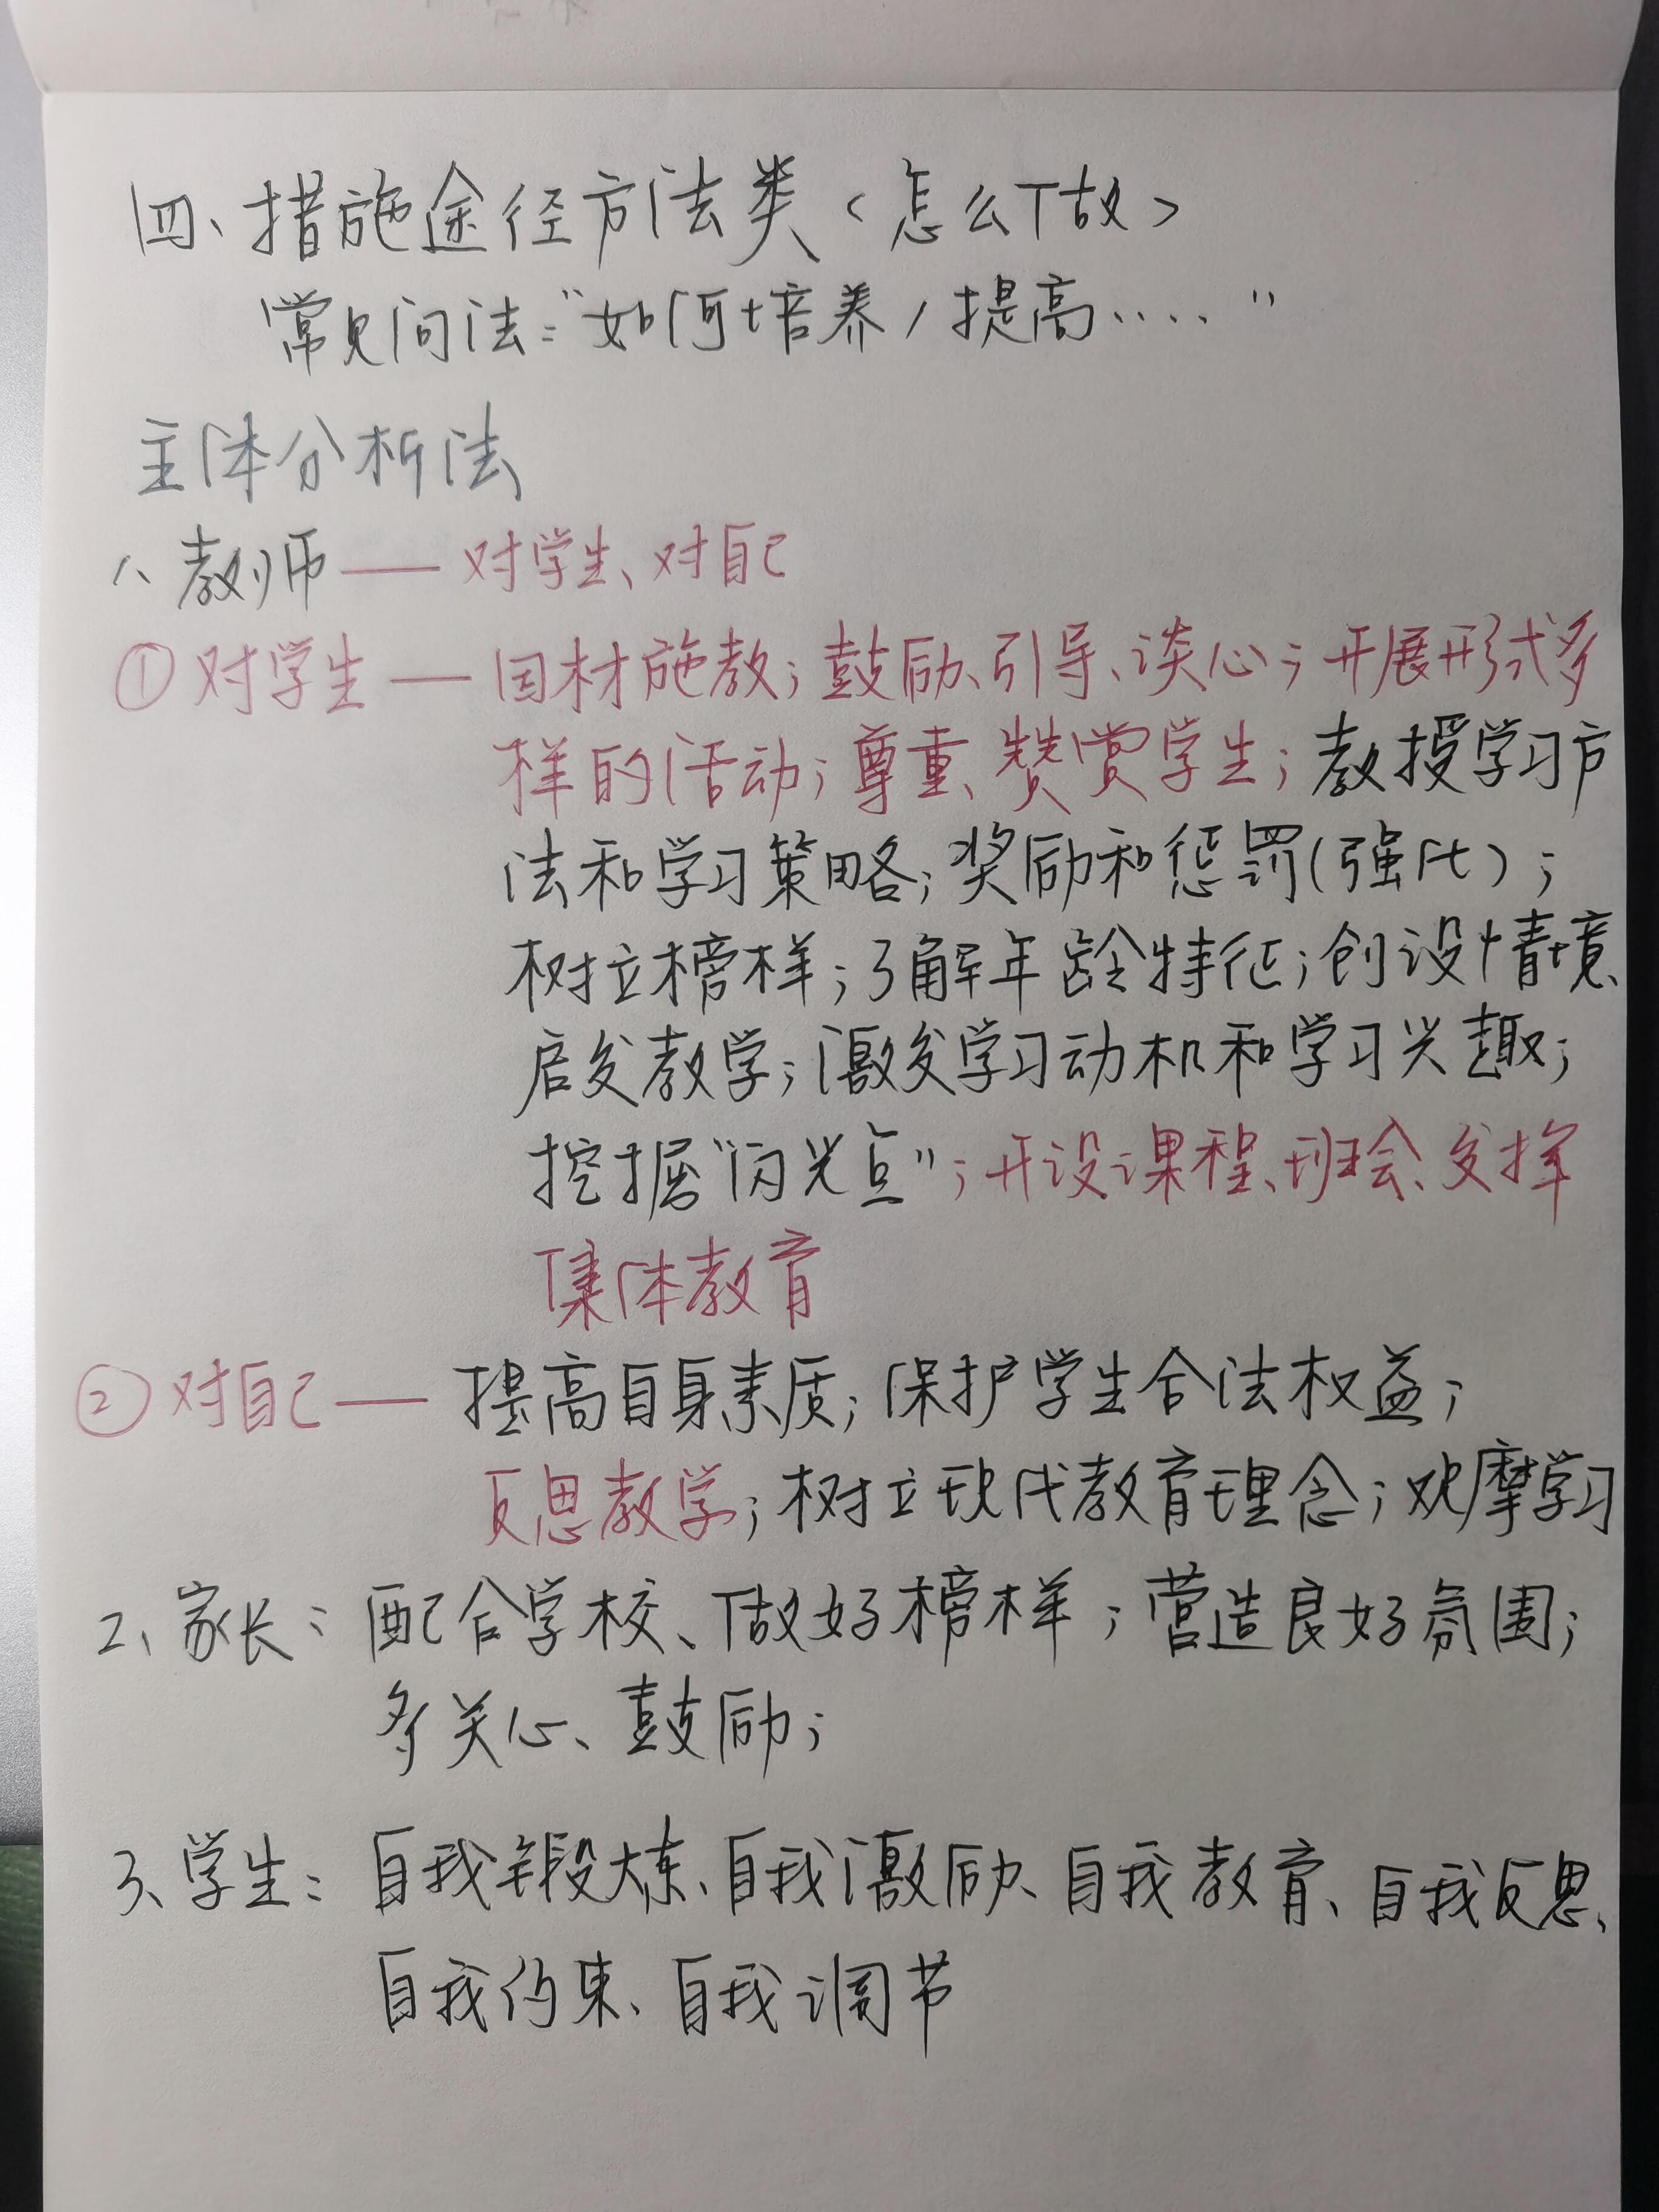 四、措施途径方法类<怎么做>
常见问法:“如何培养/提高....”
主体分析法
1、教师——对学生、对自己
①对学生——因材施教;鼓励、引导、谈心;开展形式多
样的活动;尊重、赞赏学生;教授学习方
法和学习策略;奖励和惩罚(强化);
树立榜样;了解年龄特征;创设情境、
启发教学;激发学习动机和学习兴趣;
挖掘“闪光点”;开设课程、班会、发挥
集体教育
②对自己——提高自身素质;保护学生合法权益;
反思教学;树立现代教育理念;观摩学习
2、家长:配合学校、做好榜样;营造良好氛围;
多关心、鼓励;
3、学生:自我锻炼、自我激励、自我教育、自我反思、
自我约束、自我调节